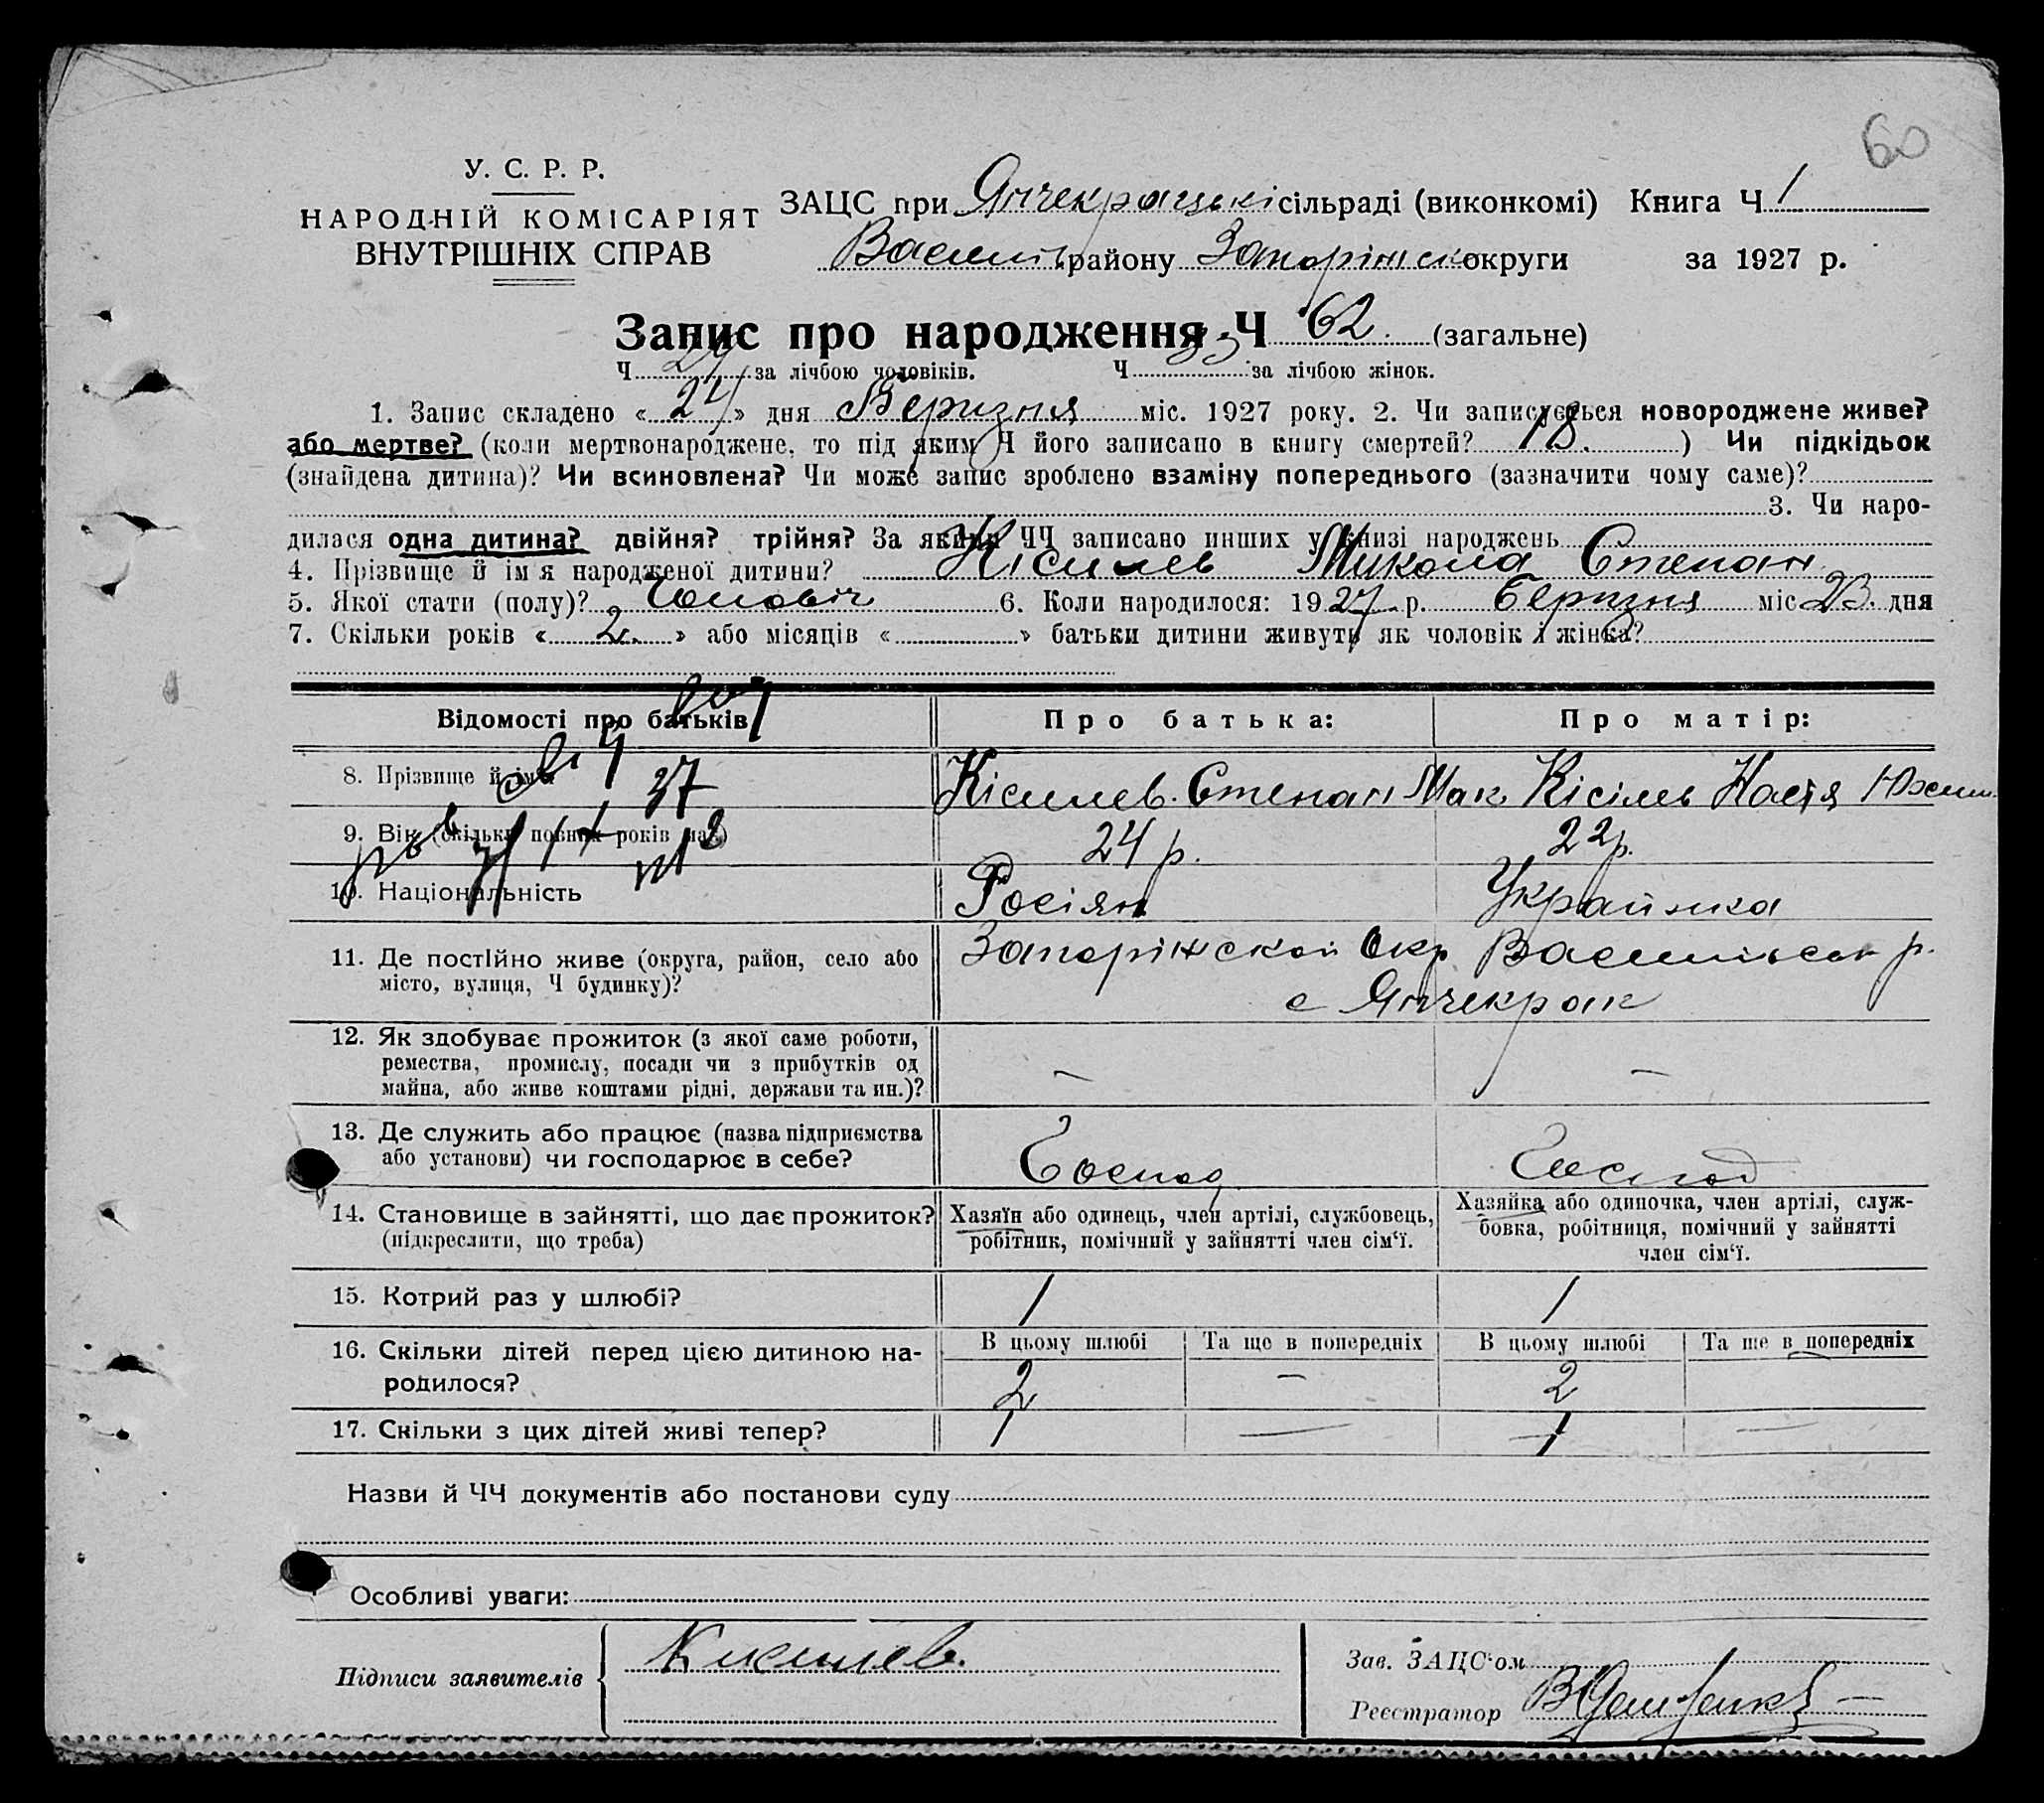 60
У. С. Р. Р.
НАРОДНІЙ КОМІСАРІЯТ
ВНУТРІШНІХ СПРАВ
ЗАЦС при Янчекрацькі сільраді (виконкомі) Книга Ч 1
Василів району Запоріжско округи за 1927 р.
Запис про народження Ч 62 (загальне)
Ч 29 за лічбою чоловіків. Ч 33 за лічбою жінок.
1. Запис складено « 24 » дня Березня міс. 1927 року. 2. Чи записується новороджене живе?
або мертве? (коли мертвонароджене, то під яким Ч його записано в книгу смертей? 18. ) Чи підкідьок
(знайдена дитина)? Чи всиновлена? Чи може запис зроблено взаміну попереднього (зазначити чому саме)?
3. Чи наро-
дилася одна дитина? двійня? трійня? За якими ЧЧ записано инших у книзі народжень
4. Прізвище й ім я народженої дитини? Кісилев Микола Степан
5. Якої стати (полу)? Чоловіч 6. Коли народилося: 1927 р. Березня міс 23. дня
7. Скільки років « 2. » або місяців « » батьки дитини живуть як чоловік і жінка?
Відомості про батьків
Про батька: Про матір:
8. Прізвище й ім'я Кісилев Степан Мак Кісілев Настя Юхим.
37
9. Вік (скільки повних років має) 24 р. 22 р.
10. Національність Росіян Українка
11. Де постійно живе (округа, район, село або Запоріжской Окр Васильевск р.
місто, вулиця, Ч будинку)? с Янчекрак
12. Як здобуває прожиток (з якої саме роботи,
ремества, промислу, посади чи з прибутків од
майна, або живе коштами рідні, держави та ин.)? — —
13. Де служить або працює (назва підприємства
або установи) чи господарює в себе? Господ Господ
14. Становище в зайнятті, що дає прожиток?
(підкреслити, що треба)
Хазяїн або одинець, член артілі, службовець,
робітник, помічний у зайнятті член сім'ї.
Хазяйка або одиночка, член артілі, служ-
бовка, робітниця, помічний у зайнятті
член сім'ї.
15. Котрий раз у шлюбі? 1 1
16. Скільки дітей перед цією дитиною на-
родилося?
В цьому шлюбі Та ще в попередніх В цьому шлюбі Та ще в попередніх
2 — 2
17. Скільки з цих дітей живі тепер? 1 — 1 —
Назви й ЧЧ документів або постанови суду
Особливі уваги:
Підписи заявителів Киселев.
Зав. ЗАЦС'ом
Реєстратор